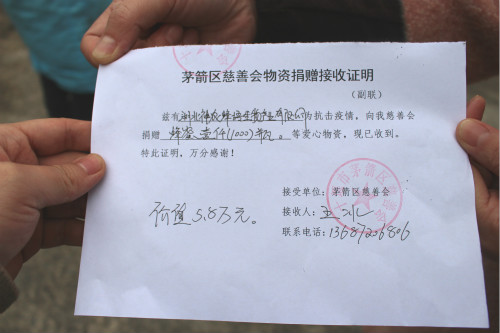 茅箭区慈善会物资捐赠接收证明
（副联）
兹有湖北 有限公司为抗击疫情，向我慈善会
捐赠 蜂蜜壹仟(1000)瓶。等爱心物资，现已收到。
特此证明，万分感谢！
接受单位：茅箭区慈善会
价值5.8万元。
接收人：王冰
联系电话：
市茅箭区慈善会